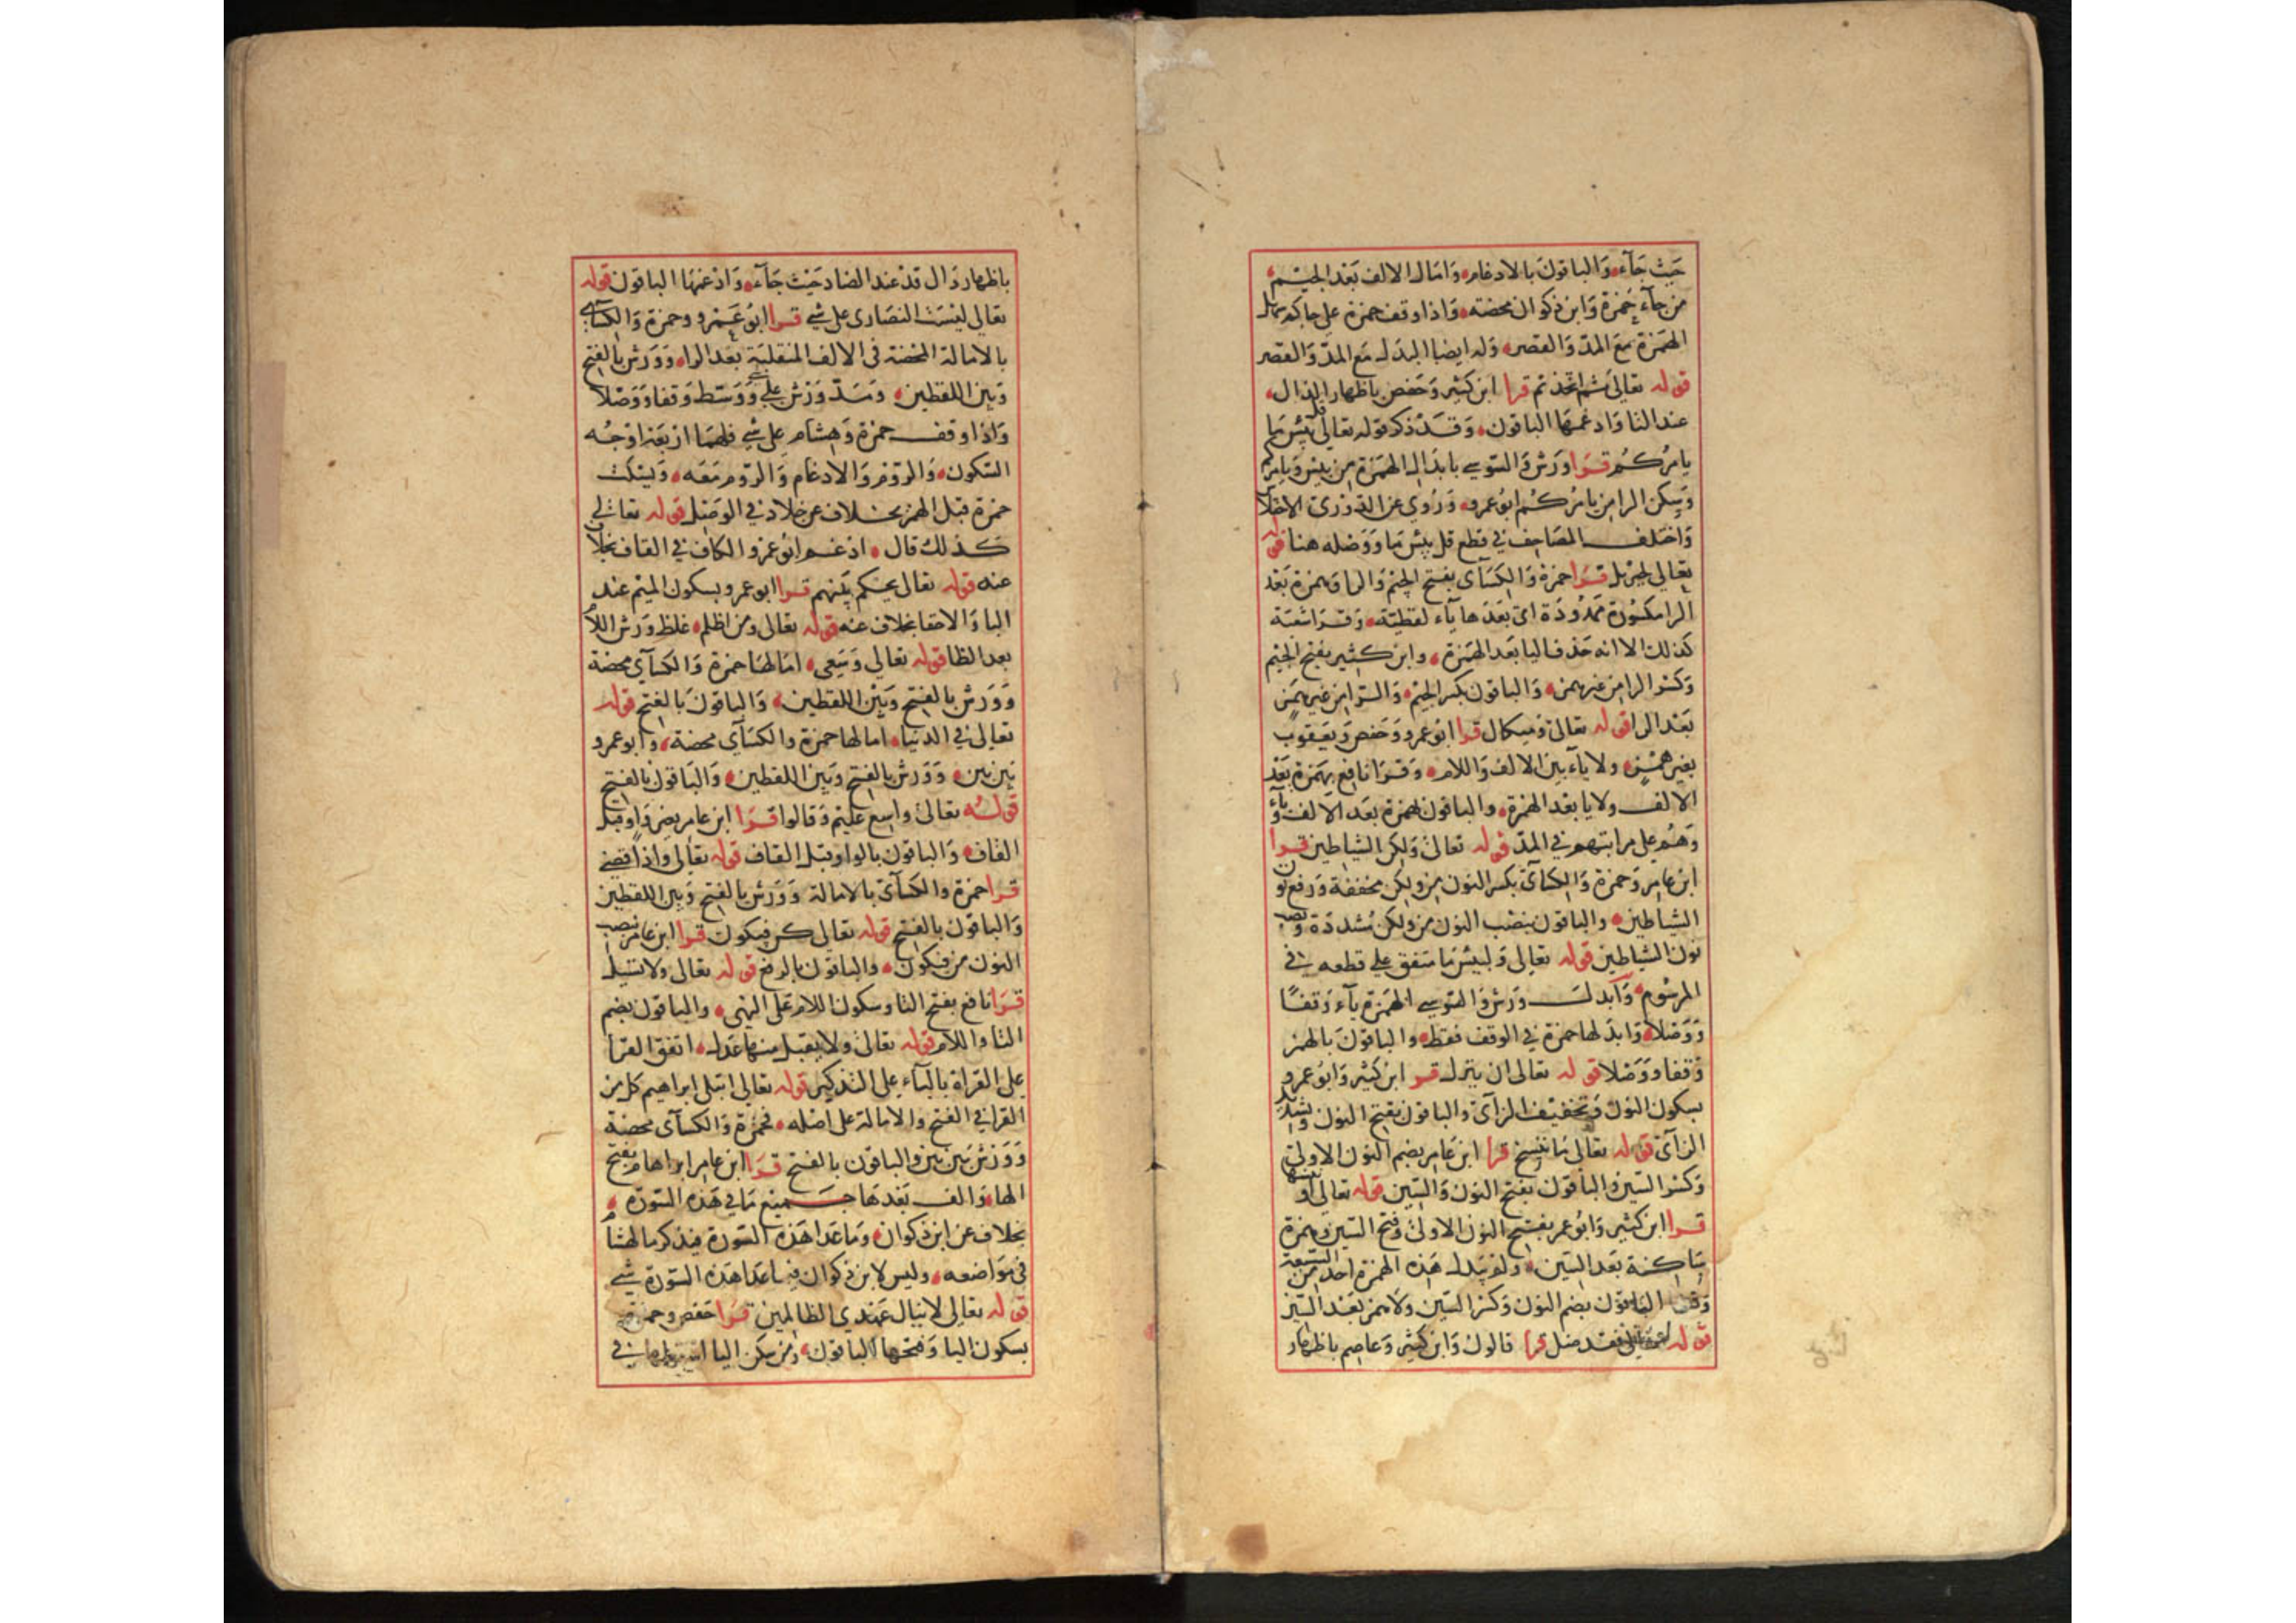 حيث جآء والباقون بالادغام وامال الالف بعد الجيم
من جآء حمزة وابن ذكوان محضة واذا وقف حمزة على جاكم سهل
الهمزة مع المد والقصر وله ايضا البدل مع المد والقصر
قوله تعالى ثم اتخذتم قرا ابن كثير وحفص باظهار الذال
عند التا وادغمها الباقون وقد ذكر قوله تعالى قل بئس ما
يامركم قرا ورش والسوسي بابدال الهمزة من بئس ويامركم
وسكن الرا من يامركم ابوعمرو وروي عن الدوري الاختلا
واختلف المصاحف في قطع قل بئس ما ووصله هنا قوله
تعالى لجبريل قرا حمزة والكسآى بفتح الجيم والرا وهمزة بعد
الرا مكسورة ممدودة اى بعدها يآء لفظية وقرا شعبة
كذلك الا انه حذف اليا بعد الهمزة وابن كثير بفتح الجيم
وكسر الرا من غير همز والباقون بكسر الجيم والرا من غير همز
بعد الرا قوله تعالى وميكال قرا ابوعمرو وحفص ويعقوب
بغير همز ولا يآء بين الالف واللام وقرا نافع بهمزة بعد
الالف ولا يا بعد الهمزة والباقون بهمزة بعد الالف ويآء
وهم على مراتبهم في المد قوله تعالى ولكن الشياطين قرا
ابن عامر وحمزة والكسآى بكسر النون من ولكن مخففة ورفع نون
الشياطين والباقون بنصب النون من ولكن مشددة ونصب
نون الشياطين قوله تعالى ولبئس ما متفق على قطعه في
المرسوم وابدل ورش والسوسي الهمزة يآء وقفا
ووصلا وابدلها حمزة في الوقف فقط والباقون بالهمز
وقفا ووصلا قوله تعالى ان ينزل قرا ابن كثير وابوعمرو
بسكون النون وتخفيف الزآى والباقون بفتح النون وتشديد
الزآى قوله تعالى ما ننسخ قرا ابن عامر بضم النون الاولى
وكسر السين والباقون بفتح النون والسين قوله تعالى او ننسها
قرا ابن كثير وابوعمر بفتح النون الاولى وفتح السين وهمزة
ساكنة بعد السين ولم يبدل هذه الهمزة احد من السبعة
وقرا الباقون بضم النون وكسر السين ولا همز بعد السين
قوله تعالى فقد ضل قرا قالون وابن كثير وعاصم باظهار
باظهار دال قد عند الضاد حيث جآء وادغمها الباقون قوله
تعالى ليست النصارى على شي قرا ابوعمرو وحمزة والكسآى
بالامالة المحضة في الالف المنقلبة بعد الرا وورش بالفتح
وبين اللفظين ومد ورش على شي ووسط وقفا ووصلا
واذا وقف حمزة وهشام على شي فلهما اربعة اوجه
السكون والروم والادغام والروم معه ويسكت
حمزة قبل الهمز بخلاف عن خلاد في الوصل قوله تعالى
كذلك قال ادغم ابوعمرو الكاف في القاف بخلاف
عنه قوله تعالى يحكم بينهم قرا ابوعمرو بسكون الميم عند
البا والاخفا بخلاف عنه قوله تعالى ومن اظلم غلظ ورش اللام
بعد الظا قوله تعالى وسعى امالها حمزة والكسآى محضة
وورش بالفتح وبين اللفظين والباقون بالفتح قوله
تعالى في الدنيا امالها حمزة والكسآى محضة وابوعمرو
بين بين وورش بالفتح وبين اللفظين والباقون بالفتح
قوله تعالى واسع عليم وقالوا قرا ابن عامر بغير واو قبل
القاف والباقون بالواو قبل القاف قوله تعالى واذا قضى
قرا حمزة والكسآى بالامالة وورش بالفتح وبين اللفظين
والباقون بالفتح قوله تعالى كن فيكون قرا ابن عامر بنصب
النون من فيكون والباقون بالرفع قوله تعالى ولا تسيل
قرا نافع بفتح التا وسكون اللام على النهى والباقون بضم
التا واللام قوله تعالى ولا يقبل منها عدل اتفق القرا
على القراة باليآء على التذكير قوله تعالى ابتلى ابراهيم كل من
القرا في الفتح والامالة على اصله فحمزة والكسآى محضة
وورش بين بين والباقون بالفتح قرا ابن عامر ابراهام بفتح
الها والف بعدها جميع ما في هذه السورة
بخلاف عن ابن ذكوان وما عدا هذه السورة فيذكر ما لهشام
في مواضعه وليس لابن ذكوان فيما عدا هذه السورة شي
قوله تعالى لا ينال عهدي الظالمين قرا حفص وحمزة
بسكون اليا وفتحها الباقون ومن سكن اليا في